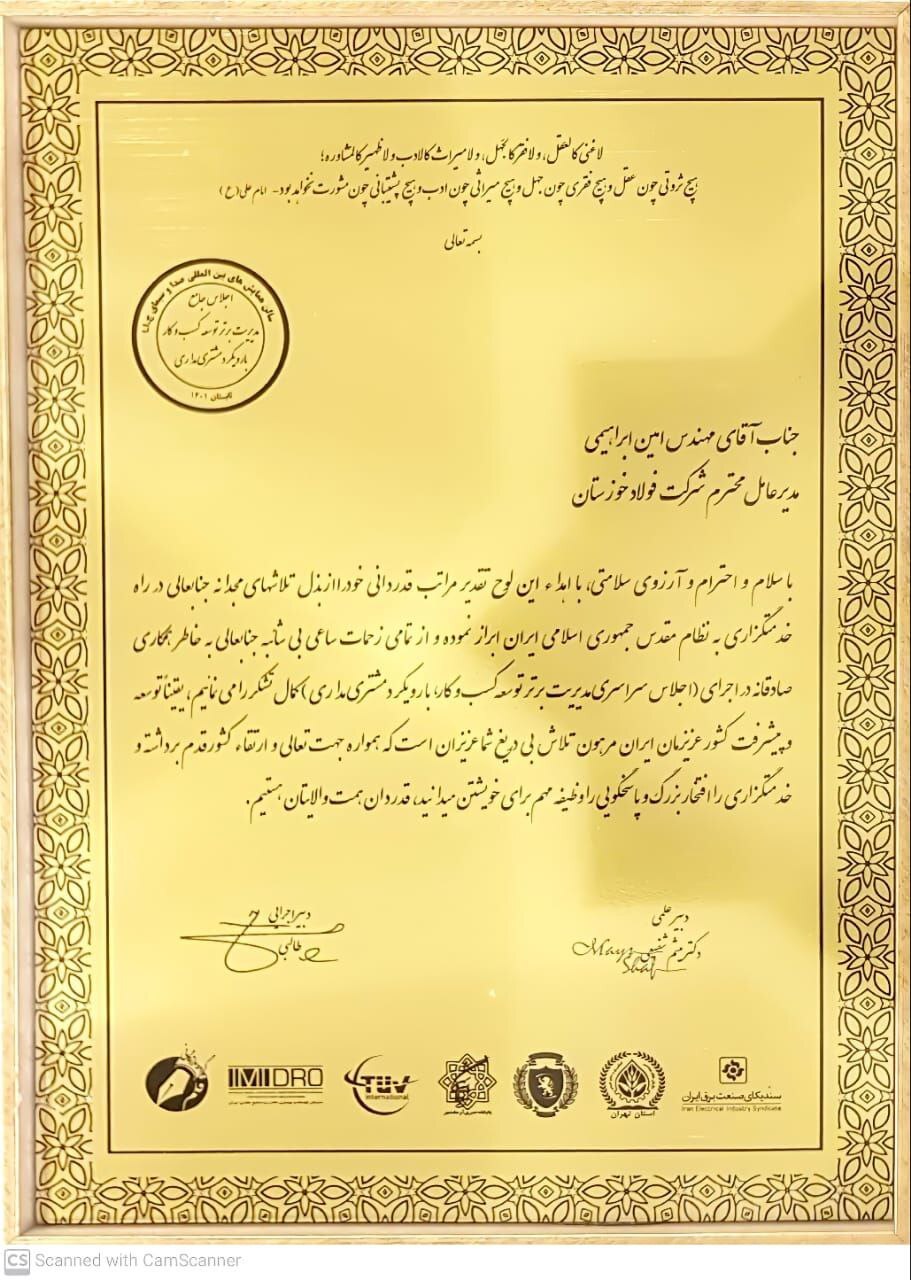 لا غنی کالعقل، ولا فقر کالجهل، ولا میراث کالادب ولا ظهیر کالمشاوره؛
هیچ ثروتی چون عقل و هیچ فقری چون جهل و هیچ میراثی چون ادب و هیچ پشتیبانی چون مشورت نخواهد بود - امام علی (ع)
بسمه تعالی
سالن همایش های بین المللی صدا و سیمای ج.ا.ا
اجلاس جامع
مدیریت برتر توسعه کسب و کار
با رویکرد مشتری مداری
تابستان ۱۴۰۱
جناب آقای مهندس امین ابراهیمی
مدیر عامل محترم شرکت فولاد خوزستان
با سلام و احترام و آرزوی سلامتی، با اهداء این لوح تقدیر مراتب قدردانی خود را از بذل تلاشهای مجدانه جنابعالی در راه
خدمتگزاری به نظام مقدس جمهوری اسلامی ایران ابراز نموده و از تمامی زحمات ساعی بی شائبه جنابعالی به خاطر همکاری
صادقانه در اجرای (اجلاس سراسری مدیریت برتر توسعه کسب و کار، با رویکرد مشتری مداری) کمال تشکر را می نمائیم، یقیناً توسعه
و پیشرفت کشور عزیزمان ایران مرهون تلاش بی دریغ شما عزیزان است که همواره جهت تعالی و ارتقاء کشور قدم برداشته و
خدمتگزاری را افتخار بزرگ و پاسخگویی را وظیفه مهم برای خویشتن میدانید، قدردان همت والایتان هستیم.
دبیر علمی
دکتر میثم شفیعی
دبیر اجرایی
طالبی
سندیکای صنعت برق ایران
Iran Electrical Industry Syndicate
استان تهران
TÜV
international
IMIDRO
CS Scanned with CamScanner